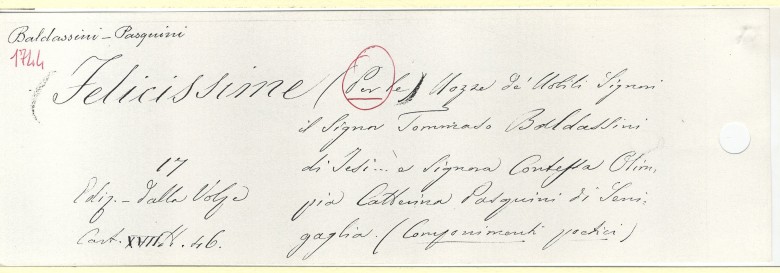 Baldassini - Pasquini
1744
Felicissime (Per le) Nozze de' Nobili Signori
il Signor Tommaso Baldassini
di Jesi... e Signora Contessa Olim,
pia Catterina Pasquini di Seni,
gaglia. (Componimenti poetici)
17
Ediz. - Dalla Volpe
Cart. XVII. 46.